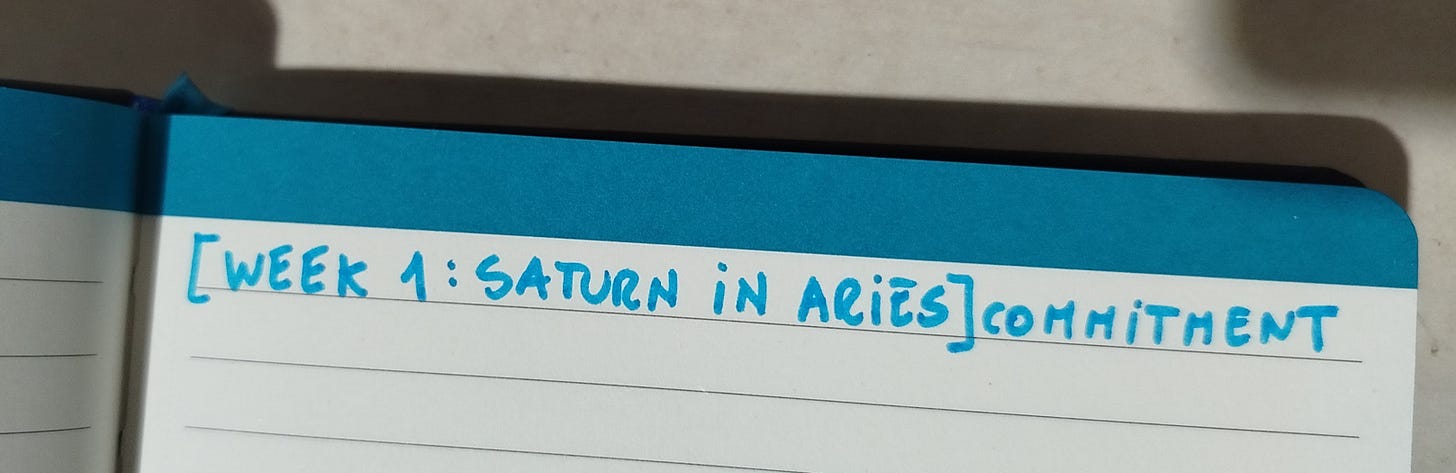 [WEEK 1: SATURN iN ARiĒS] COMMiTMENT